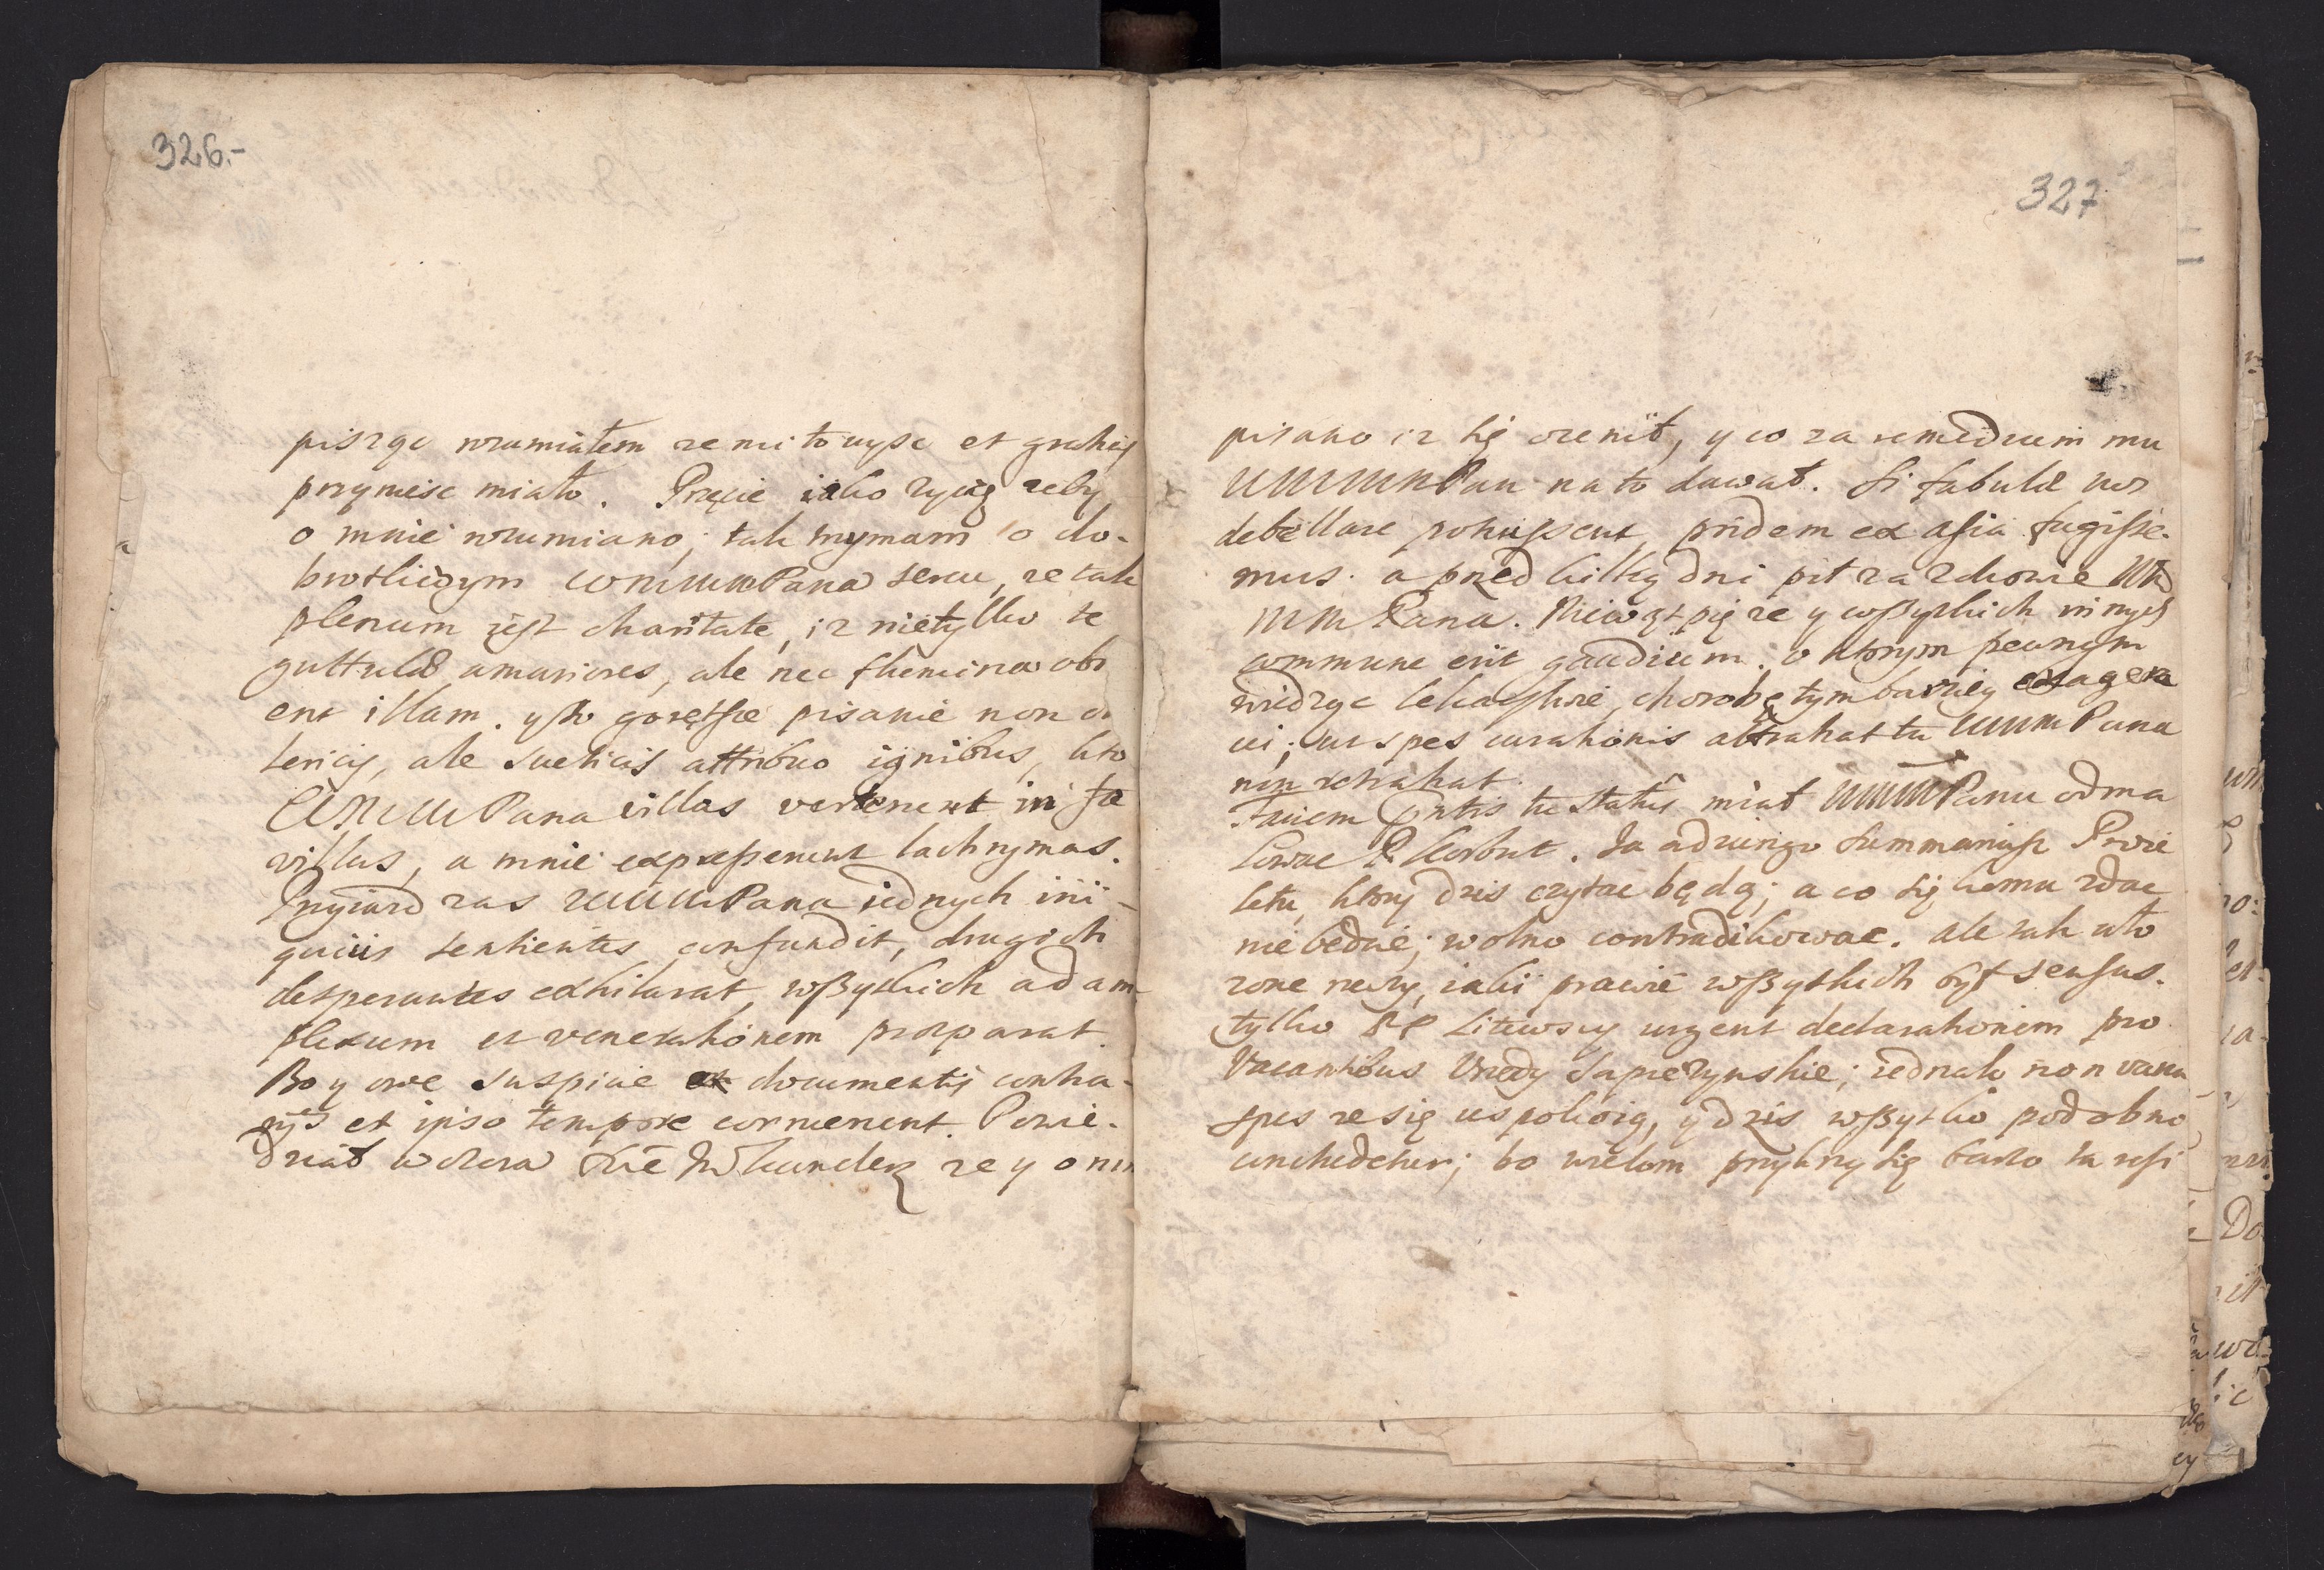 326.-
pisząc rozumiałem ze mi to uysc et gratiis
przyniesc miało. Przecie iako zyczę zeby
o mnie rozumiano, tak trzymam o do-
brotliwym WMMMPana sercu, ze tak
plenum iest charitate, iz nie tylko te
guttulæ amariores, ale nec flumina obr
ent illam. y to gorętsze pisanie non
ale suelicis attribuo ignibus, kto
WMMMPana villas verterent in fa
villas, a mnie expresserunt lachrymas.
Przyiazd zas WMMMPana iednych ini-
quius sentientes confundit, drugich
desperantes exhilarat, wszytkich ad am
plexum et venerationem præparat.
Bo y owe suspicie documentis contra-
rijs et ipso tempore corruerunt. Powie-
dział wczora Kanclerz ze y o nim
327
pisano iz się ozenił, y co za remedium mu
WMMMPan na to dawał. Si fabulæ nos
debellare potuissent pridem ex asia fugisse-
mus. a przed kilką dni pił za zdrowie WM
MMPana. Niewątpię ze y wszytkich innych
commune erit gaudium; o ktorym pewnym
widząc lekarstwie, chorobę tym barziey exagera
ui; ut spes curationis abstrahat tu WMMMPana
nin retrahat.
Faciem pntis tu status miał WMMMPanu odma
lowac P. Korbut. Ja adiungo summariusz Proie
ktu, ktory dzis czytac będą; a co się komu zdac
nie bedzie; wolno contradikowac. ale tak uło
zone rzeczy, iaki prawie wszytkich był sensus.
tylko PP Litewscy urgent declarationem pro
Vacantibus Vrzedy Sapiezynskie; iednak non vana
spes ze się uspokoią, y dzis wszytko podobno
concludetur; bo wielom przykrzy się barzo ta resi